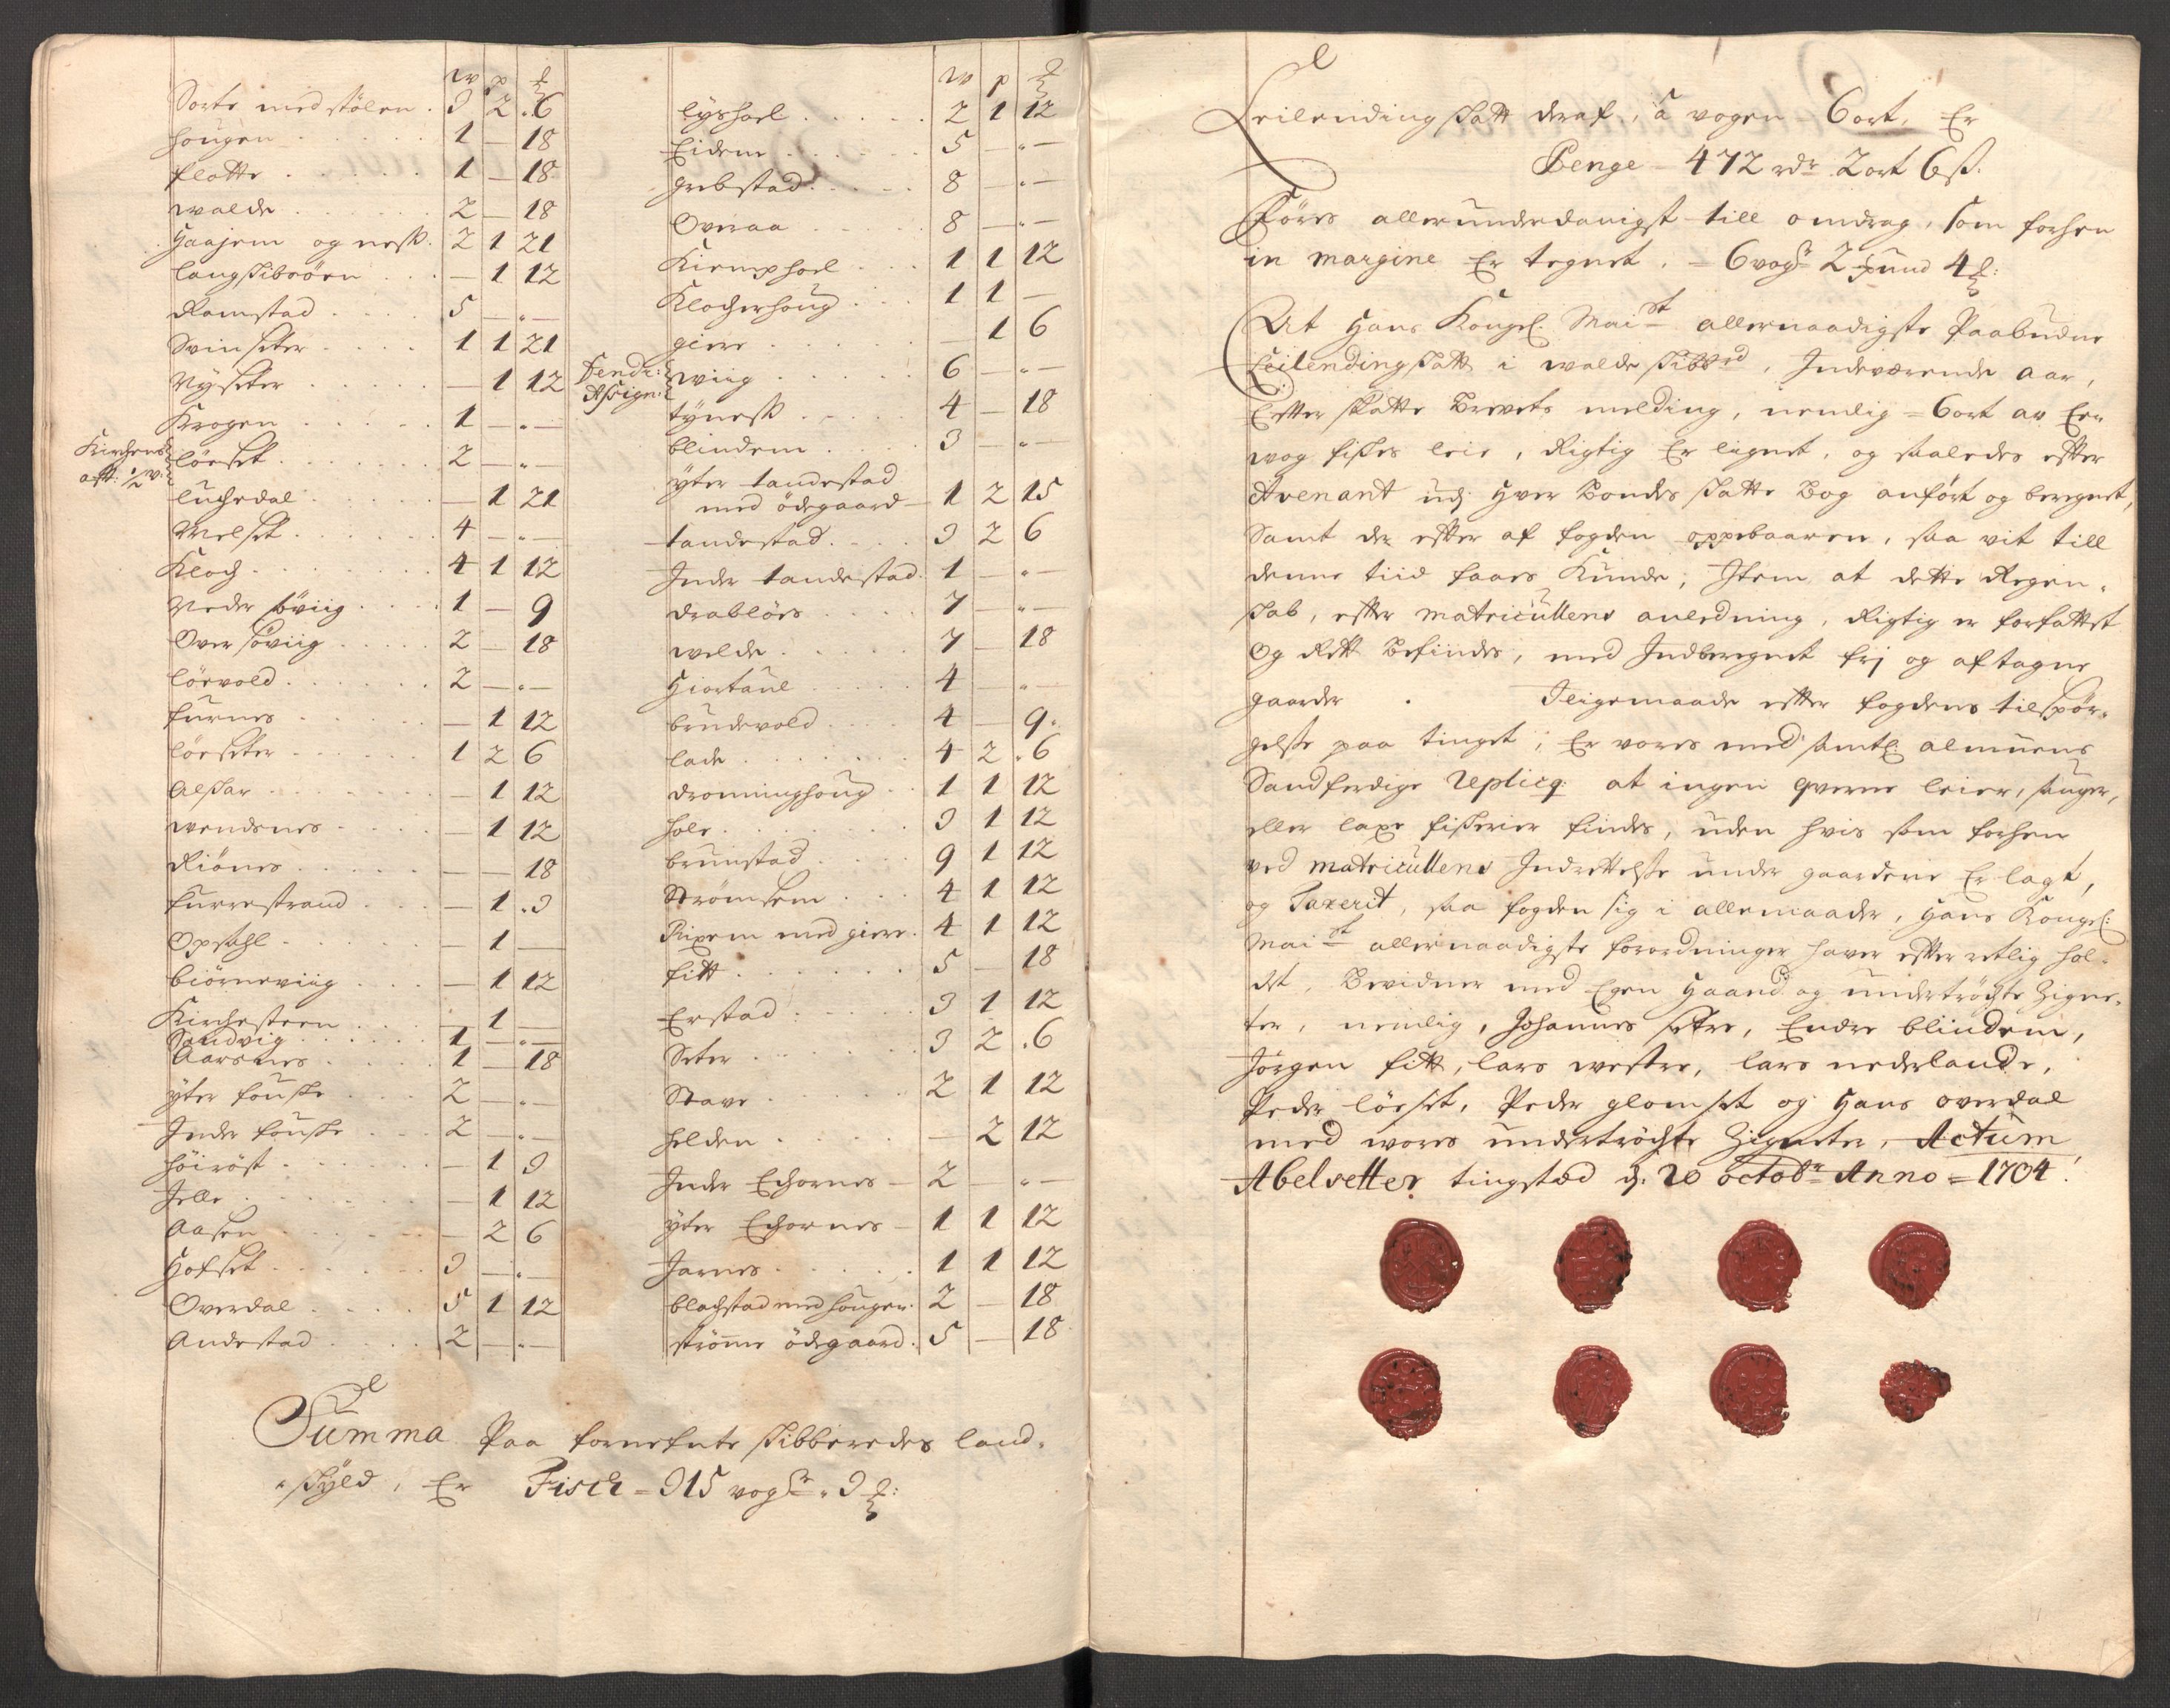 w p ℔
Sorte med stølen . 3 2 . 6
hougen 1 — 18
flotte 1 — 18
walde 2 — 18
Haajem og ness . 2 1 21
langskibsøen — 1 12
Ramstad 5 — . —
Svinseter 1 1 21
Nyseter — 1 12
Krogen 1 — . —
Kirchens
aft: ½ w:
løeset 2 — . —
luchedal — 1 21
Melset 4 — . —
Kloch 4 1 12
Neder søviig 1 — 9
Over søviig 2 — 18
lørvold 2 — . —
furnes — 1 12
løeseter 1 2 6
Alskar — 1 12
wendsnes — 1 12
Riønes — — 18
furrestrand — 1 . 3
Opsahl — 1 —
biørneviig — 1 12
Kirchesteen — 1 —
Sandvig 1 — . —
Aarsnes 1 — 18
ytter fouske 2 — . —
Inder fouske 2 — . —
høirøst — 1 3
Jelle — 1 12
Aasen — 2 6
Hofset 3 — . —
Overdal 5 1 12
Andestad 2 — . —
w p ℔
lyshoel 2 1 12
Eidem 5 — . —
grebstad 8 — . —
Overaa 8 — . —
Kiemphoel 1 1 12
Klocherhoug 1 1 —
giere — 1 6
Assign:
wiig 6 — . —
tyness 4 — 18
blindem 3 — . —
ytter tandestad
med ødegaard 1 2 15
tandestad 3 2 6
Inder tandestad 1 — . —
drabløs 7 — . —
welde 7 — 18
Hiortaul 4 — . —
brudevold 4 — 9 .
lade 4 2 . 6
dronninghoug 1 1 12
hole 3 1 12
brunstad 9 1 12
Strømsem 4 1 12
Ripem med giere . 4 1 12
fitt 5 — 18
Erstad 3 1 12
Seter 3 2 . 6
Stave 2 1 12
helden — 2 12
Inder Echornes 2 — . —
ytter Echornes 1 1 12
Jarnes 1 1 12
blachstad med hougen . 2 — 18
strømme ødegaard . 5 — 18
Summa Paa fornefnte skibberedes land-
skyld, Er Fisch = 315 vogr . 3 ℔:
Leilending skatt deraf, á vogen 6 ort, Er
Penge — 472 rdr 2 ort 6 ß.
Føres allerunderdanigst till omdrag, som forhen
in margine Er tegnet, = 6 vogr 2 pund 4 ℔:
At Hans Kongel. Maist allernaadigste Paabudne
Leilendingskatt i walde skibbrd, Indeværende aar,
Efter skatte Brevets melding, nemlig = 6 ort av Hver
wog fiskes leie, Rigtig Er lignet, og saaledes efter
Avenant udj Hver Bondes skatte Bog anført og beregnet,
Samt der efter af fogden oppebaaren, saa vit till
denne tiid faaes Kunde, Item at dette Regen-
skab, efter matricullens anledning, Rigtig er forfattet
Og Rett Befindes, med Indberegnet frj og aftagne
gaarder . Iligemaade efter fogdens tilspør-
gelse paa tinget, Er vores med samtl: almuens
Sandferdige replicq: at ingen qverne leier, sauger,
eller laxe fiskerier findes, uden hvis som forhen
ved matricullens Indrettelse under gaardene Er lagt,
og Taxerit, saa fogden sig i allemaader, Hans Kongel:
Maist allernaadigste forordninger haver efterretlig hol-
det, Bevidner med Egen Haand og undertrøchte Zigne-
ter, nemlig, Johannes setre, Endre blindem,
Jørgen fitt, lars westre, lars nederlande,
Peder løeset, Peder glomset og Hans overdal
med wores undertrøchte Zigneter, Actum
Abelsetter tingstæd d: 20 octobr Anno = 1704